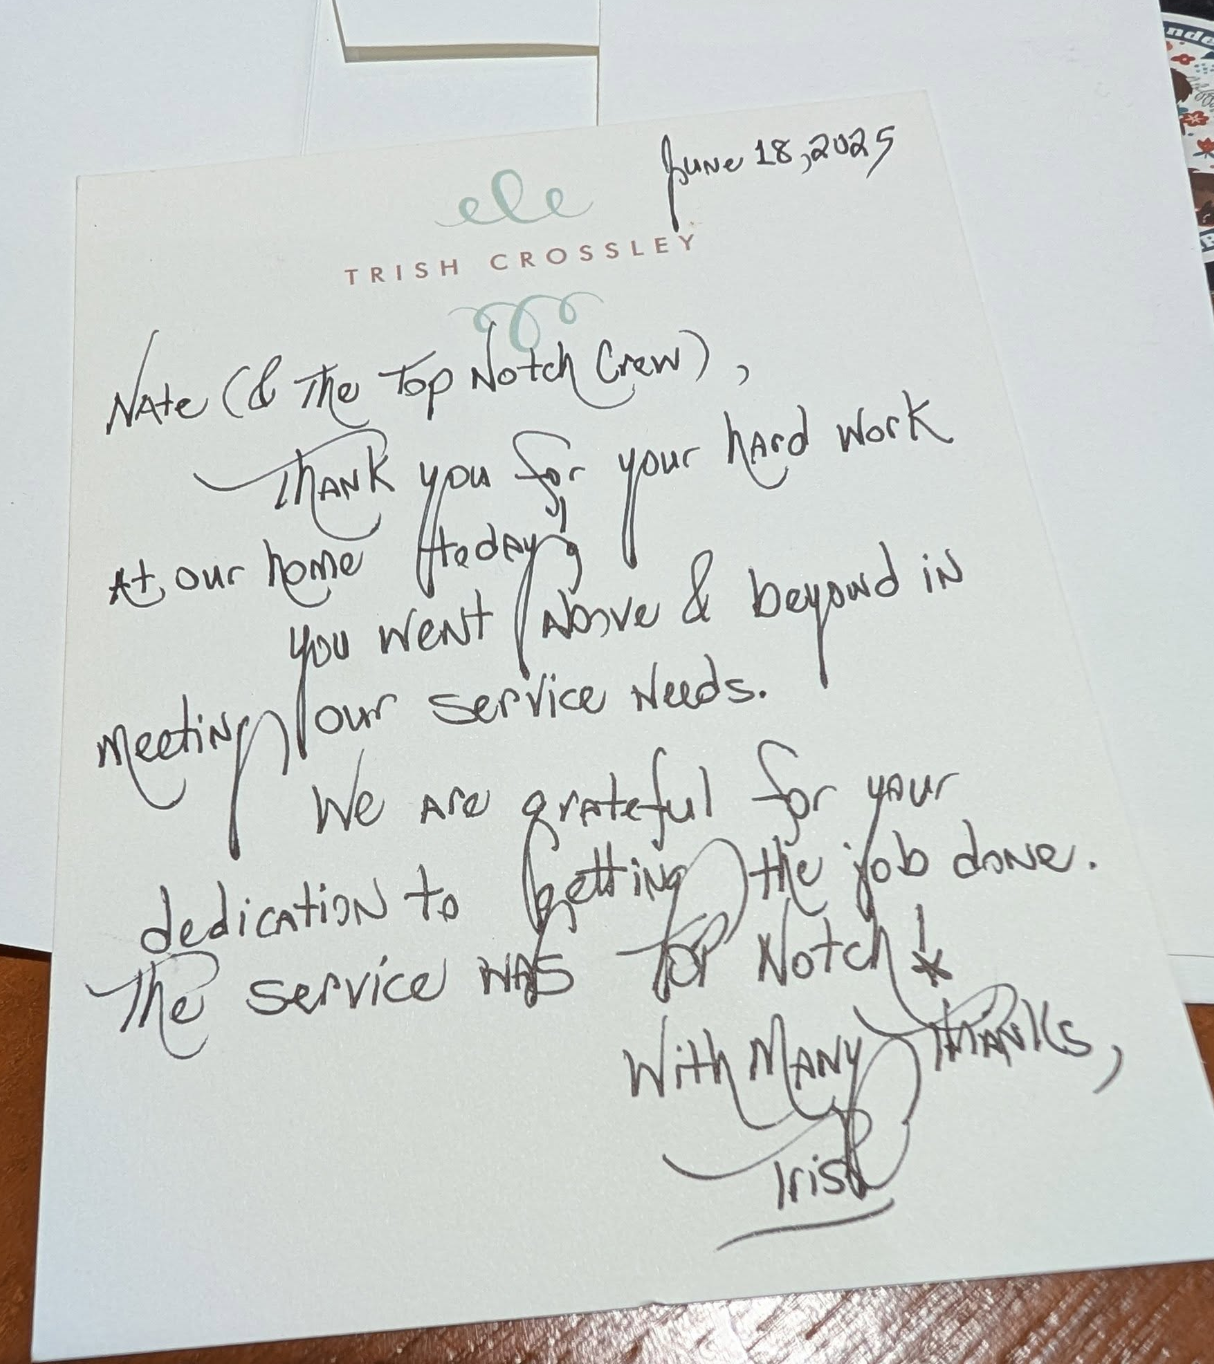 June 18, 2025
TRISH CROSSLEY
Nate (& The Top Notch Crew),
Thank you for your hard work
at our home today;
you went above & beyond in
meeting our service needs.
We are grateful for your
dedication to getting the job done.
The service was TOP Notch!
With Many Thanks,
Trish